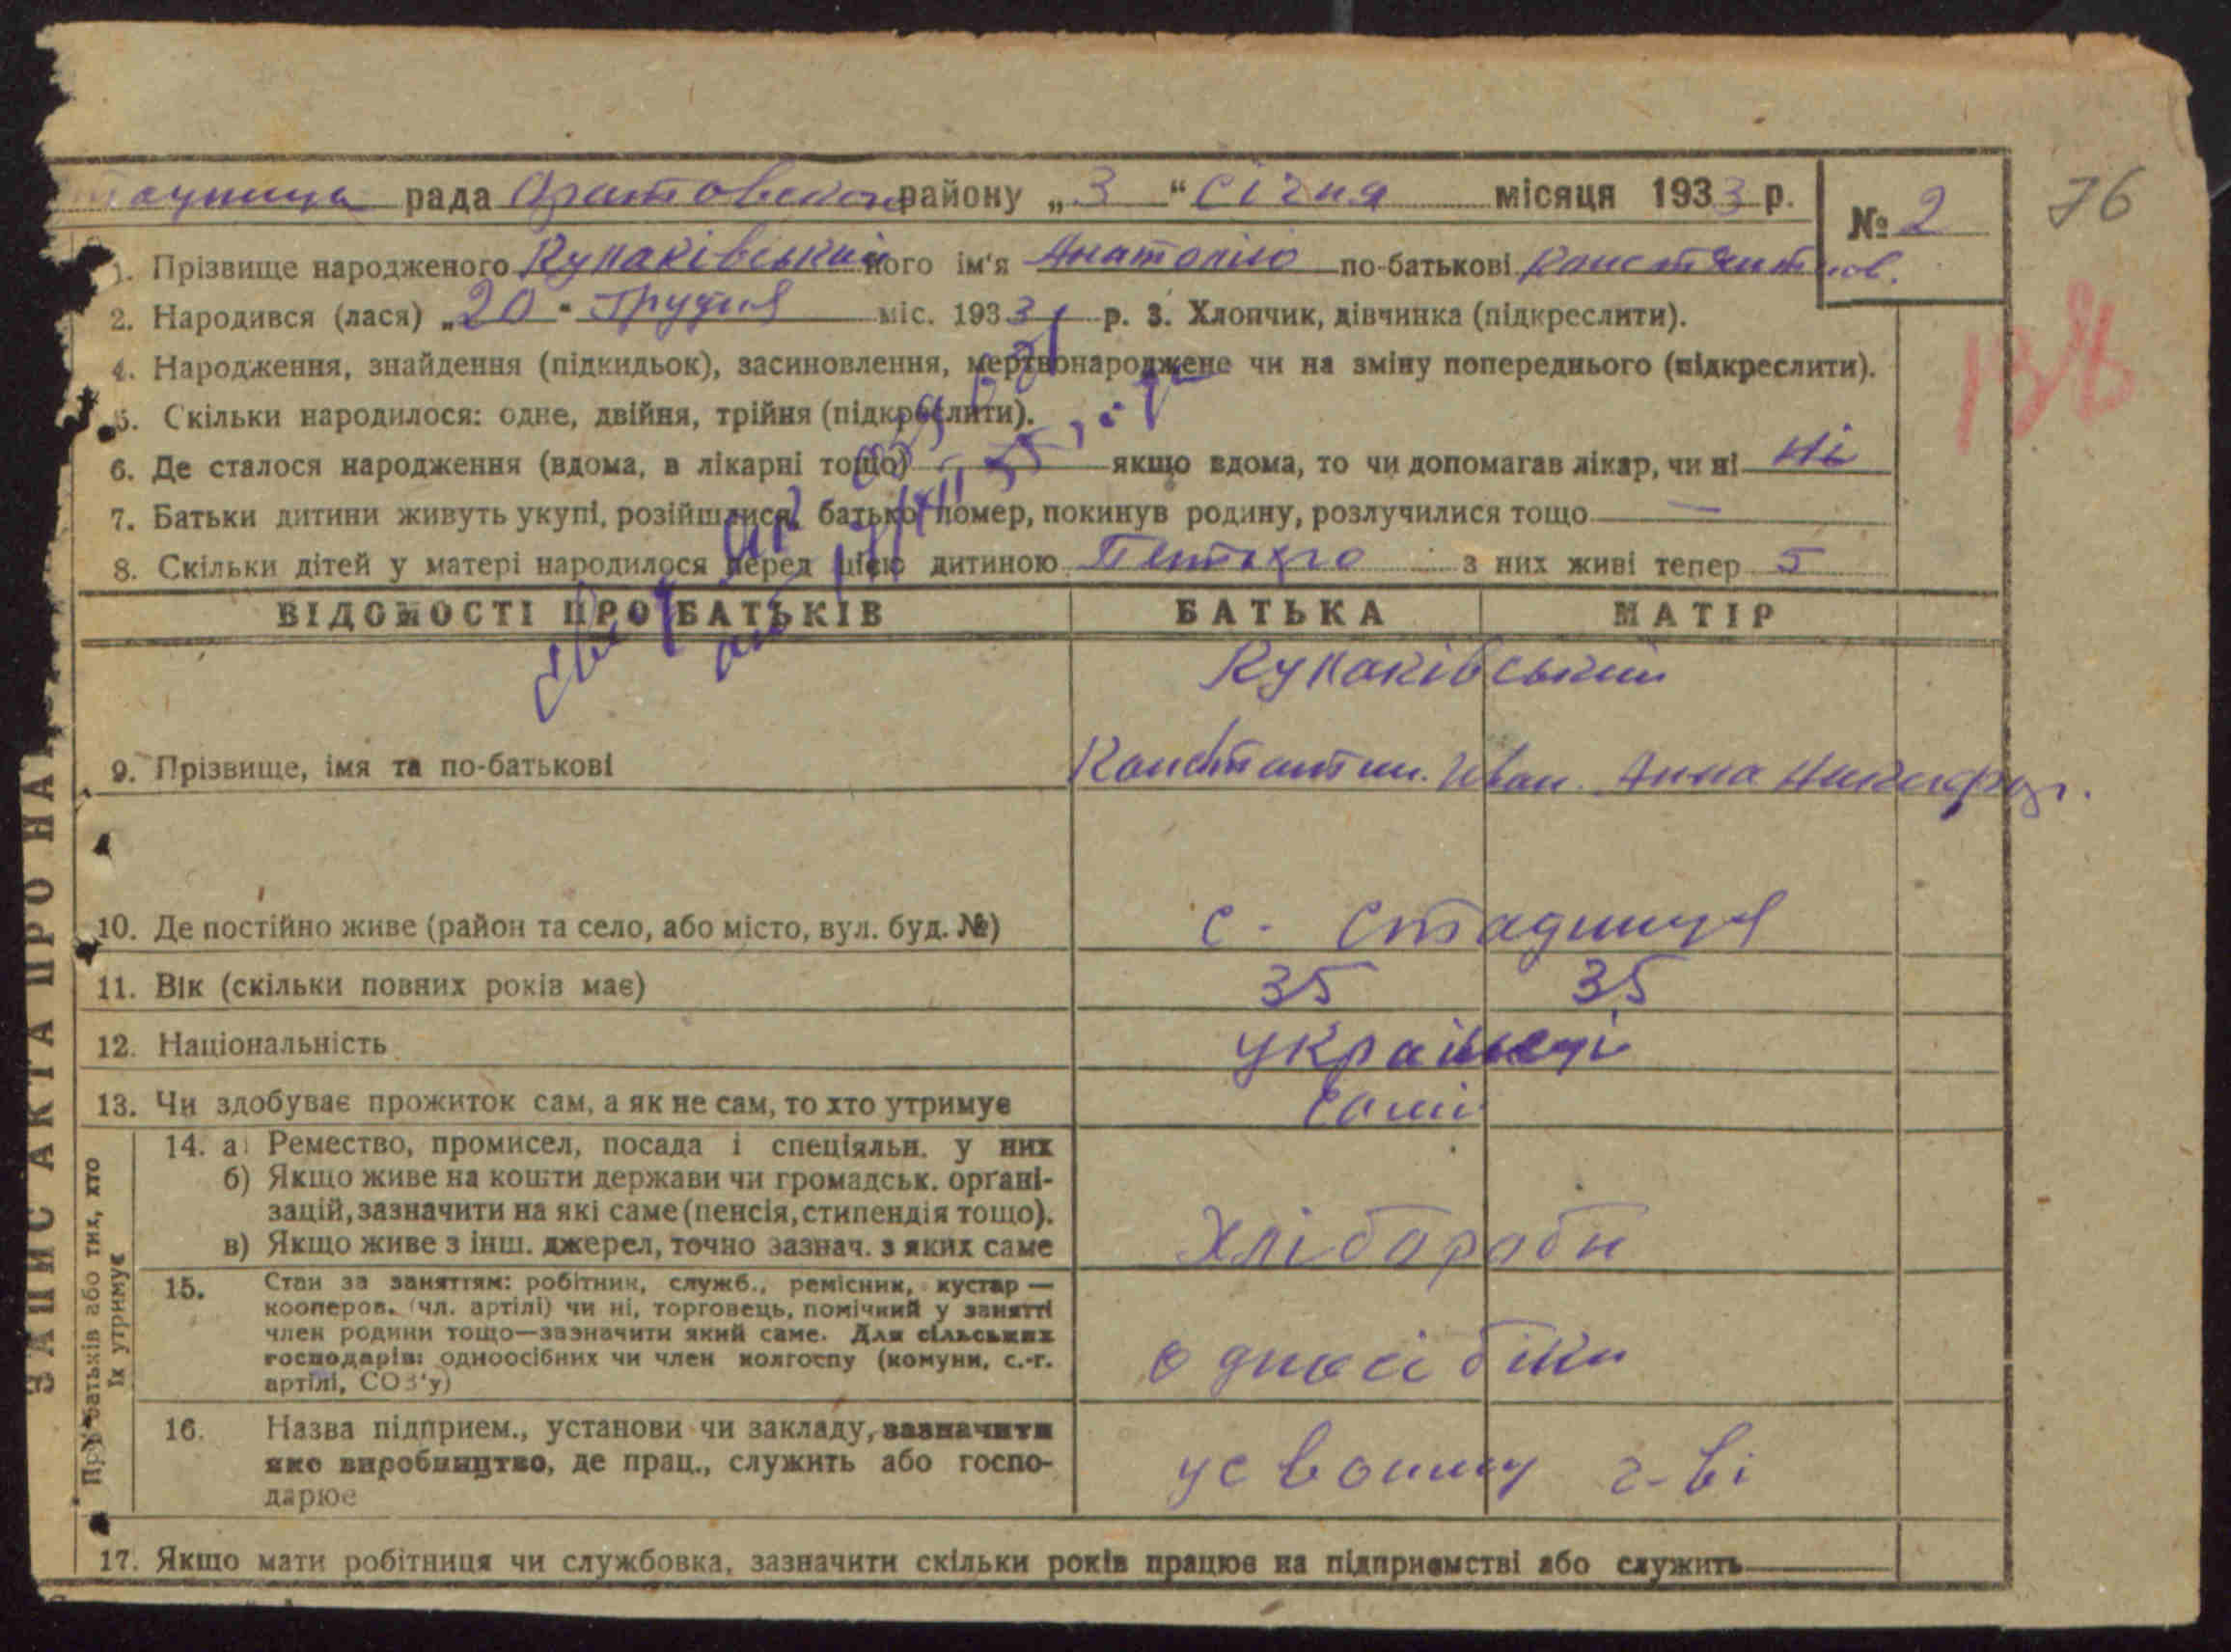 рада Оратовського району „3“ січня місяця 1933 р.
№ 2
76
1. Прізвище народженого Купаківський його ім'я Анатолію по-батькові Констянтинов.
2. Народився (лася) „20" Грудня міс. 193 р. 3. Хлопчик, дівчинка (підкреслити).
4. Народження, знайдення (підкидьок), засиновлення, мертвонароджене чи на зміну попереднього (підкреслити).
138
5. Скільки народилося: одне, двійня, трійня (підкреслити).
6. Де сталося народження (вдома, в лікарні тощо) якщо вдома, то чи допомагав лікар, чи ні Ні
7. Батьки дитини живуть укупі, розійшлися, батько помер, покинув родину, розлучилися тощо —
8. Скільки дітей у матері народилося перед цією дитиною з них живі тепер 5
ВІДОМОСТІ ПРО БАТЬКІВ БАТЬКА МАТІР
Купаківський
9. Прізвище, імя та по-батькові Константин. Иван. Анна
10. Де постійно живе (район та село, або місто, вул. буд. №) с. Стадниця
11. Вік (скільки повних років має) 35 35
12. Національність українці
13. Чи здобуває прожиток сам, а як не сам, то хто утримує самі
14. а) Ремество, промисел, посада і спеціяльн. у них
б) Якщо живе на кошти держави чи громадськ. орґані-
зацій, зазначити на які саме (пенсія, стипендія тощо).
в) Якщо живе з інш. джерел, точно зазнач. з яких саме
хлібароби
15. Стан за заняттям: робітник, служб., ремісник, кустар —
кооперов. (чл. артілі) чи ні, торговець, помічний у занятті
член родини тощо—зазначити який саме. Для сільських
господарів: одноосібних чи член колгоспу (комуни, с.-г.
артілі, СОЗ'у)
одноосібники
16. Назва підприєм., установи чи закладу, зазначити
яке виробництво, де прац., служить або госпо-
дарює
у своиму г-ві
17. Якщо мати робітниця чи службовка, зазначити скільки років працює на підприємстві або служить
ЗАПИС АКТА ПРО
Про батьків або тих, хто
їх утримує